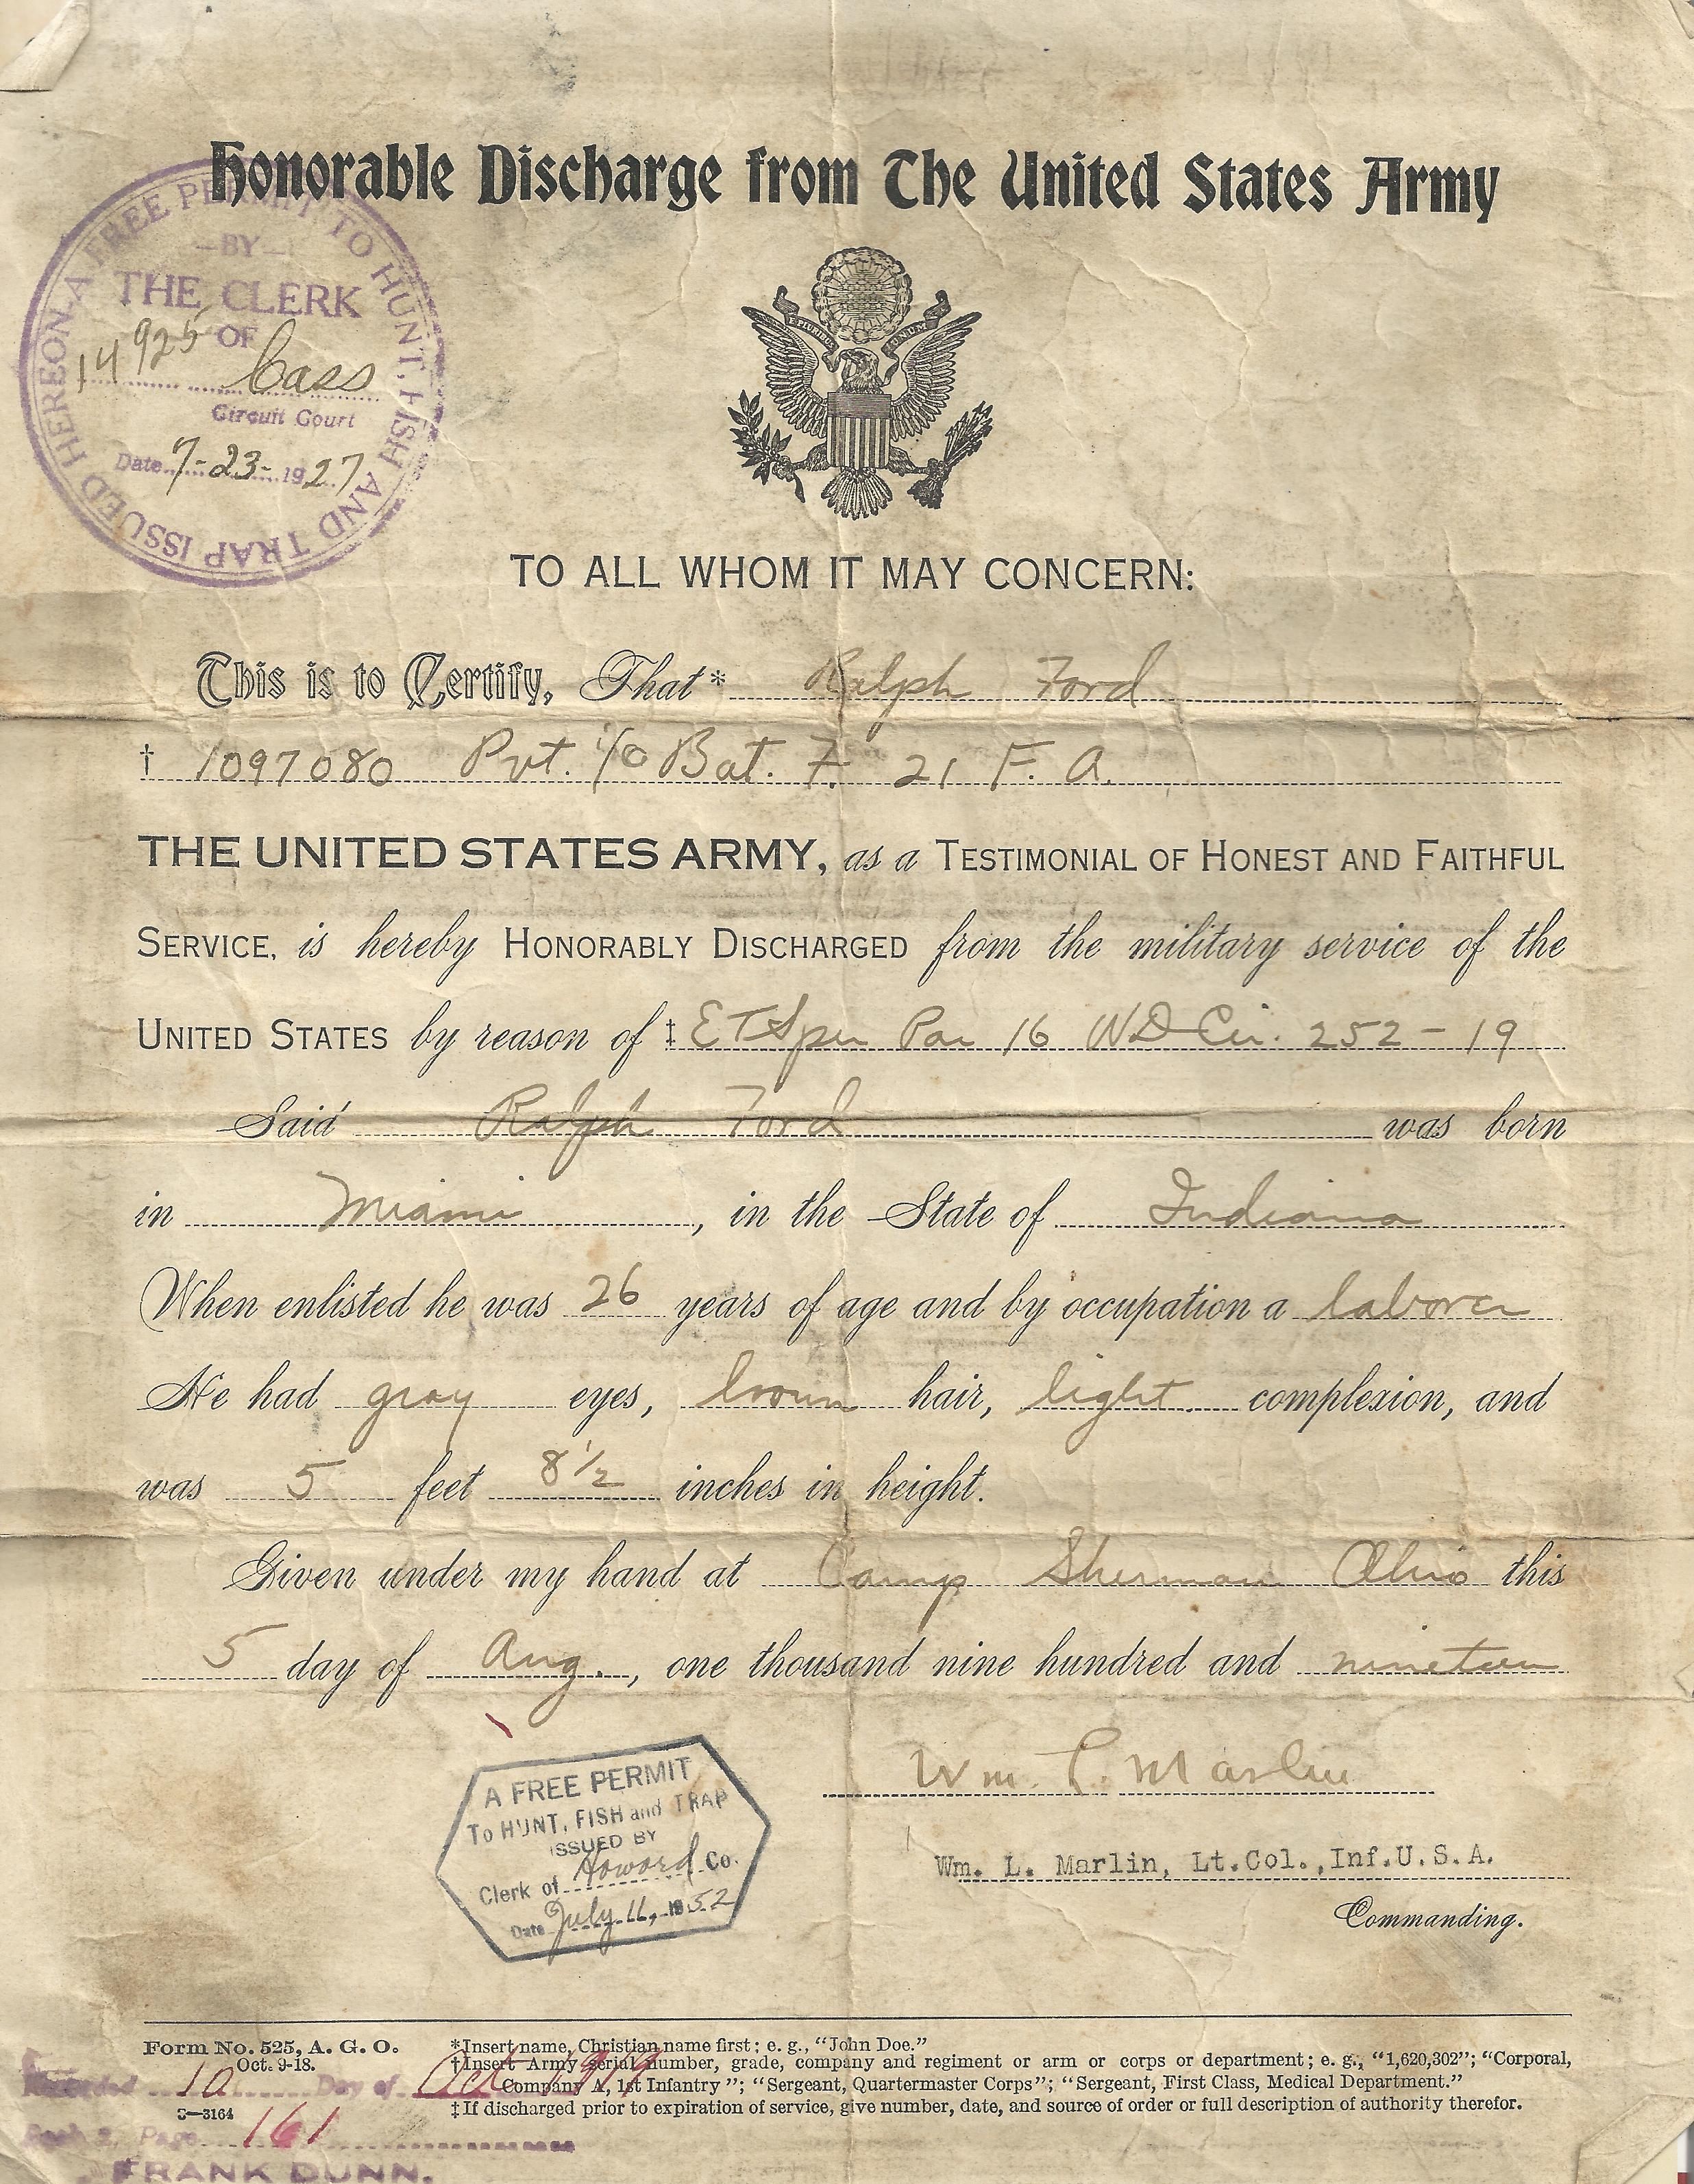 Honorable Discharge from The United States Army
HEREON A FREE PERMIT TO HUNT, FISH AND TRAP ISSUED
—BY—
THE CLERK
OF
14925 Cass
Circuit Court
Date 7-23-1927
E PLURIBUS UNUM
TO ALL WHOM IT MAY CONCERN:
This is to Certify, That* Ralph Ford
† 1097080 Pvt. Bat. F. 21 F. A.
THE UNITED STATES ARMY, as a TESTIMONIAL OF HONEST AND FAITHFUL
SERVICE, is hereby HONORABLY DISCHARGED from the military service of the
UNITED STATES by reason of ‡ ETS per Par 16 WD Cir. 252-19
Said Ralph Ford was born
in Miami, in the State of Indiana
When enlisted he was 26 years of age and by occupation a laborer
He had gray eyes, brown hair, light complexion, and
was 5 feet 8 1/2 inches in height.
Given under my hand at Camp Sherman Ohio this
5 day of Aug., one thousand nine hundred and nineteen
Wm. L. Marlin
Wm. L. Marlin, Lt.Col.,Inf.U.S.A.
Commanding.
A FREE PERMIT
To HUNT, FISH and TRAP
ISSUED BY
Clerk of Howard Co.
Date July 11, 1952
Form No. 525, A. G. O.
Oct. 9-18.
3—3164
*Insert name, Christian name first; e. g., "John Doe."
†Insert Army serial number, grade, company and regiment or arm or corps or department; e. g., "1,620,302"; "Corporal,
Company A, 1st Infantry"; "Sergeant, Quartermaster Corps"; "Sergeant, First Class, Medical Department."
‡If discharged prior to expiration of service, give number, date, and source of order or full description of authority therefor.
Recorded 10 Day of Oct 1919
Page 161
FRANK DUNN.